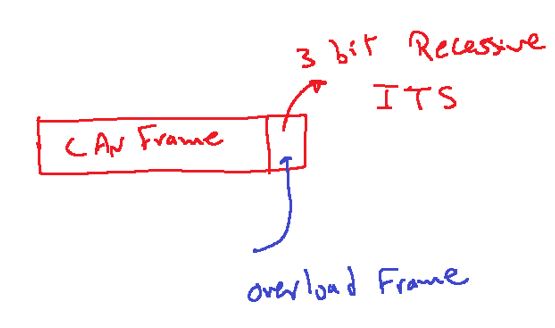 3 bit Recessive
ITS
CAN Frame
overload Frame